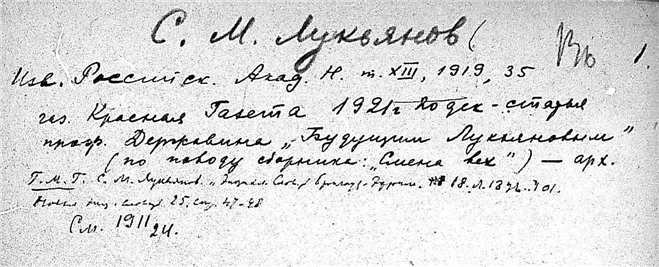 С. М. Лукьянов( Въ 1.
Изв. Российск. Акад. Н. т. XIII, 1919, 35
газ. Красная Газета 1921 г дек - статья
проф. Державина „Будущим Лукьяновым"
(по поводу сборника: „Смена вех") — арх.
Г. М. Г. С. М. Лукьянов. 18
25, стр. 47-48
См. 1911 24.